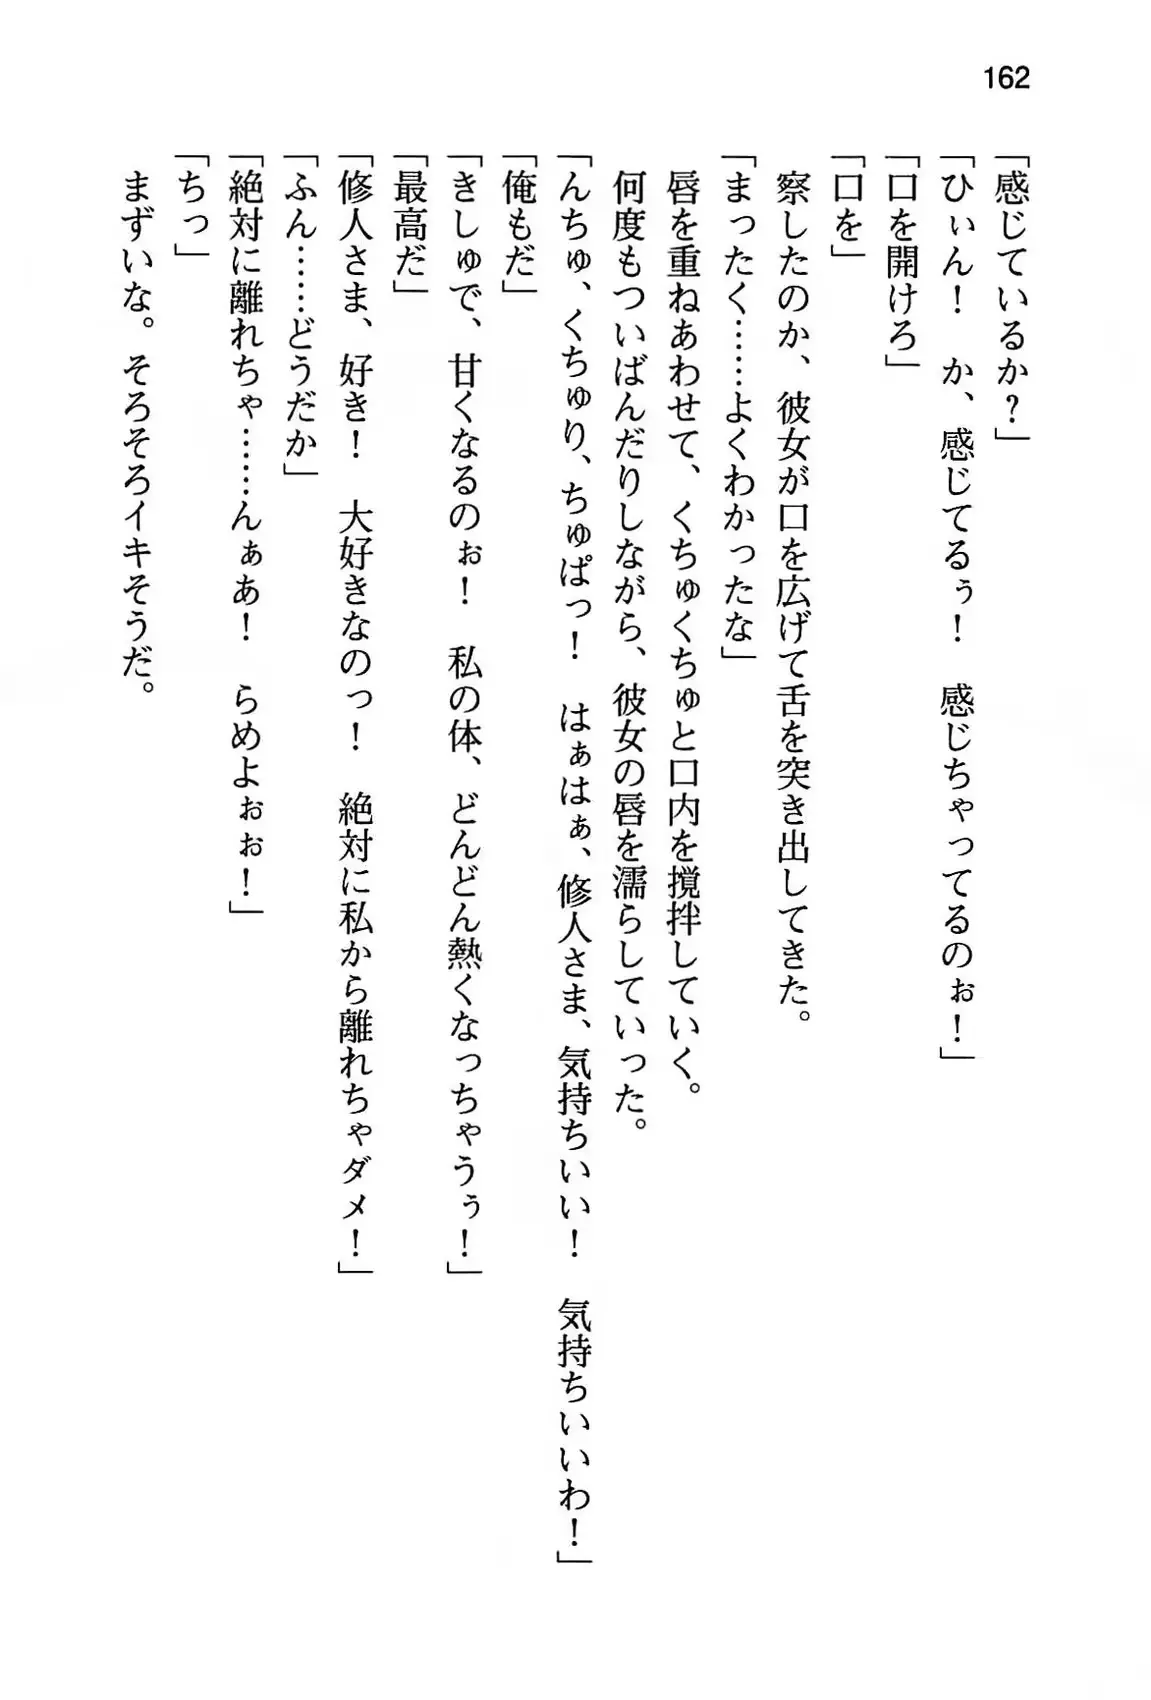 162
「感じているか?」
「ひぃん!　か、感じてるぅ!　感じちゃってるのぉ!」
「口を開けろ」
「口を」
　察したのか、彼女が口を広げて舌を突き出してきた。
「まったく……よくわかったな」
　唇を重ねあわせて、くちゅくちゅと口内を撹拌していく。
　何度もついばんだりしながら、彼女の唇を濡らしていった。
「んちゅ、くちゅり、ちゅぱっ!　はぁはぁ、修人さま、気持ちいい!　気持ちいいわ!」
「俺もだ」
「きしゅで、甘くなるのぉ!　私の体、どんどん熱くなっちゃうぅ!」
「最高だ」
「修人さま、好き!　大好きなのっ!　絶対に私から離れちゃダメ!」
「ふん……どうだか」
「絶対に離れちゃ……んぁあ!　らめよぉぉ!」
「ちっ」
　まずいな。そろそろイキそうだ。